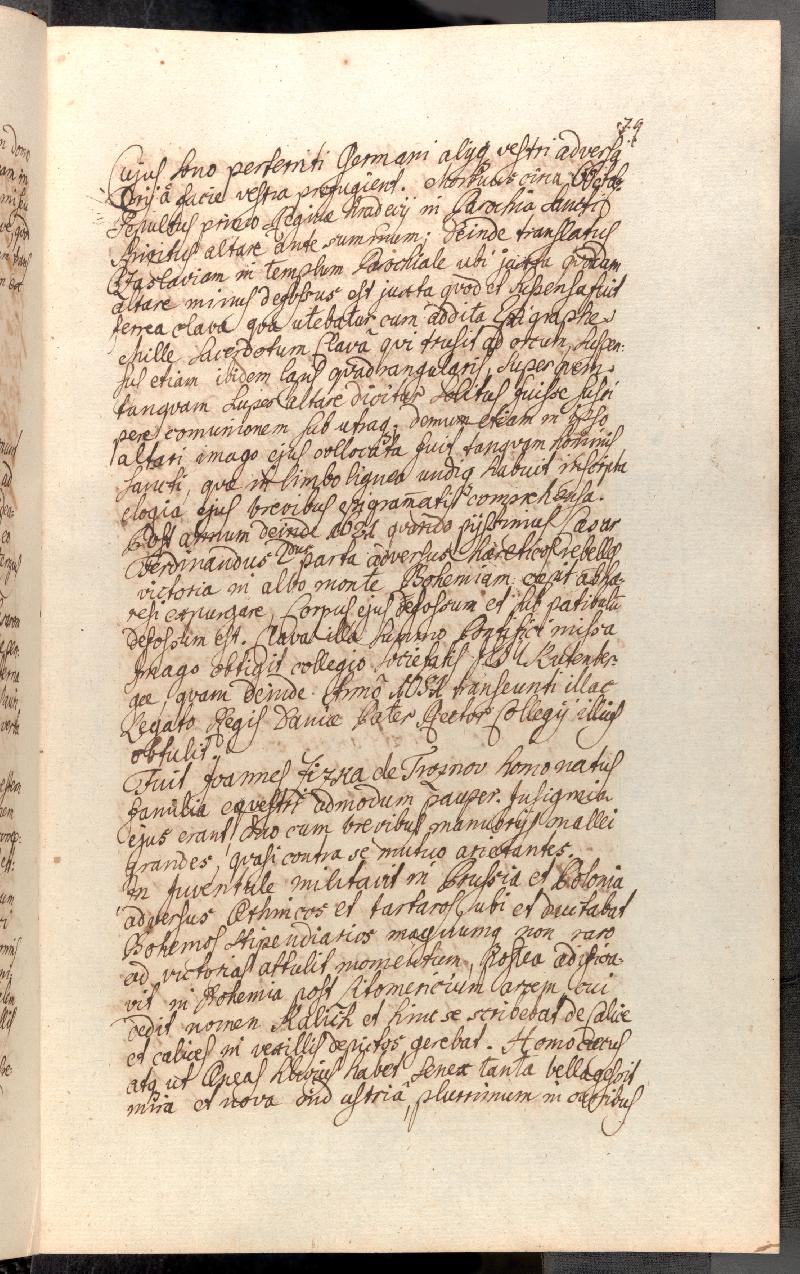 79
Cujus sono perterriti Germani aliiq vestri adversa
rij â facie vestra profugient. Mortuus circa Octob:
Sepultus primo Reginæ Hradecij in Parochia Sancti
Spiritus altare ante summum: deinde translatus
Czaslaviam in templum Parochiale ubi juxta quoddam
altare minus defossus est juxta quod et suspensa fuit
ferrea clava qua utebatur cum addita Epigraphe
Mille Sacerdotum Clavâ qui trusit ad orcum, suspen:
sus etiam ibidem lapis quadrangularis, super quem
tanquam super altare dicitur solitus fuisse susci
pere comunionem sub utraq; demum etiam in ipso
altari imago ejus collocata fuit tanquam hominis
Sancti, quæ in limbo ligneo undiq habuit inscripta
elogia ejus brevibus epigramatis comprehensa.
Post annum deinde 1621 quando piissimus Cæsar
Ferdinandus 2dus parta adversus hæreticos rebelles
victoria in albo monte Bohemiam cœpit ab hæ:
resi expurgare, Corpus ejus defossum et sub patibulū
defossum est. Clava illa Summo Pontifici missa
Imago obtigit collegio Societatis Jesu Kutenber:
gæ, quam deinde Anno 1651 transeunti illac
Legato Regis Daniæ Pater Rector Collegij illius
obtulit.
Fuit Joannes Zizka de Trosnov homo natus
familia equestri admodum pauper. Insignia
ejus erant duo cum brevibus manubrijs mallei
grandes, quasi contra se mutuo arietantes.
In Juventute militavit in Prussia et Polonia
adversus Ethnicos et tartaros, ubi et ductabat
Bohemos stipendiarios magnumq non raro
ad victorias attulit momentum, Postea ædifica:
vit in Bohemia post Litomericium arcem cui
dedit nomen Kalich et hinc se scribebat de Calice
et calices in vexillis depictos gerebat. Homo cæcus
atq ut Æneas Sylvius habet senex tanta bella gessit
mira et nova industria, plurimum in castibus